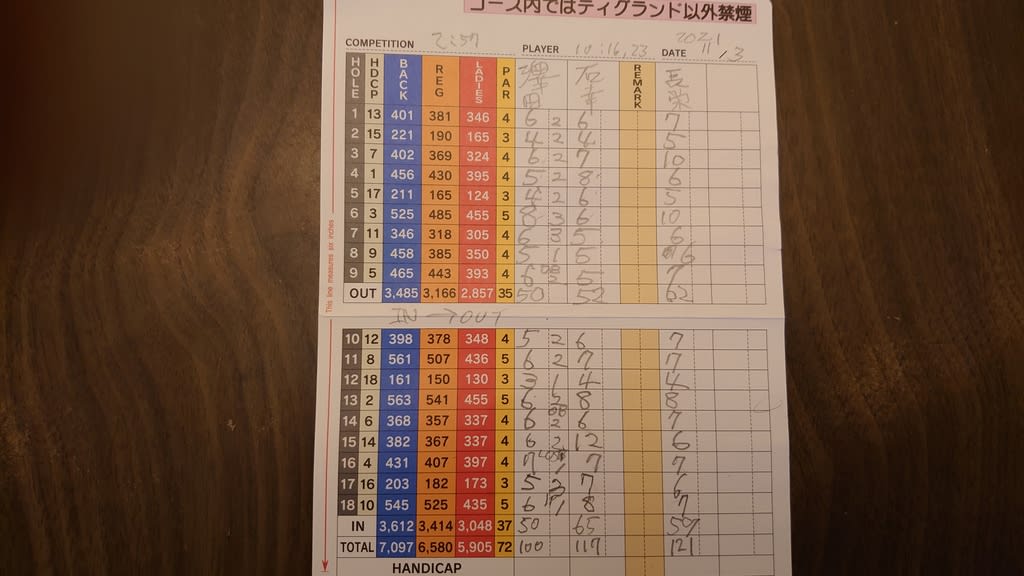 コース内ではティグランド以外禁煙
COMPETITION PLAYER 10:16,23 DATE 2021 11.3
HOLE HDCP BACK REG LADIES PAR 澤田 石幸 REMARK 長栄
1 13 401 381 346 4 6 2 6 7
2 15 221 190 165 3 4 2 4 5
3 7 402 369 324 4 6 2 7 10
4 1 456 430 395 4 5 2 8 6
5 17 211 165 124 3 4 2 6 5
6 3 525 485 455 5 8 3 6 10
7 11 346 318 305 4 6 3 5 6
8 9 458 385 350 4 5 1 5 6
9 5 465 443 393 4 6 5 7
OUT 3,485 3,166 2,857 35 50 52 62
This line measures six inches
IN → OUT
10 12 398 378 348 4 5 2 6 7
11 8 561 507 436 5 6 2 7 7
12 18 161 150 130 3 3 1 4 4
13 2 563 541 455 5 6 8 8
14 6 368 357 337 4 6 2 6 7
15 14 382 367 337 4 6 2 12 6
16 4 431 407 397 4 7 7 7
17 16 203 182 173 3 5 7 6
18 10 545 525 435 5 6 1 8 7
IN 3,612 3,414 3,048 37 50 65 59
TOTAL 7,097 6,580 5,905 72 100 117 121
HANDICAP